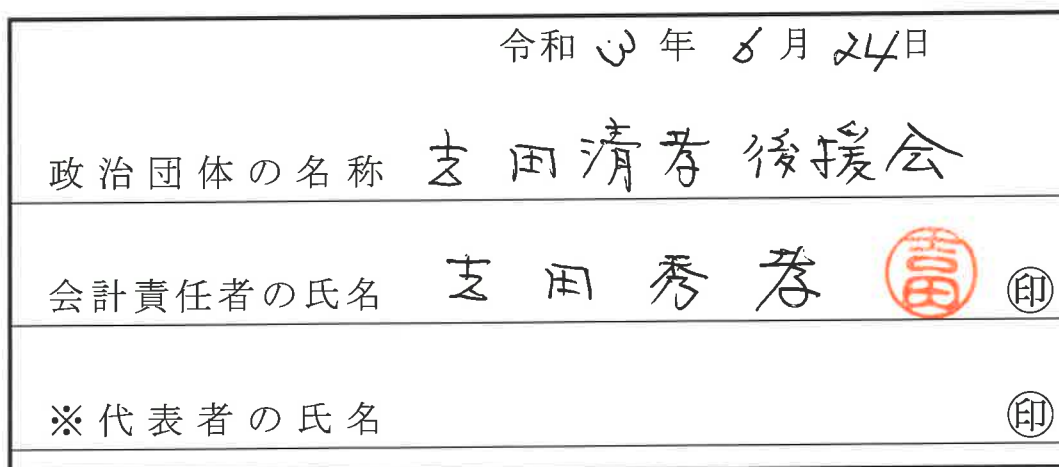 令和 3 年 6 月 24日
政治団体の名称 吉田清孝後援会
会計責任者の氏名 吉田秀孝 吉田 ㊞
※代表者の氏名 ㊞